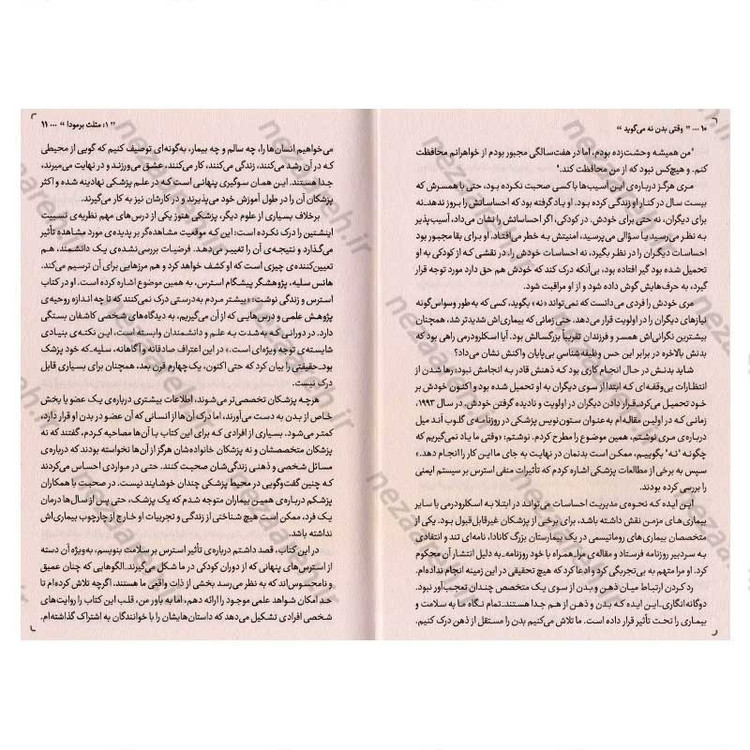 ۱۰ ... " وقتی بدن نه می‌گوید "
"من همیشه وحشت‌زده بودم، اما در هفت‌سالگی مجبور بودم از خواهرانم محافظت
کنم. و هیچ‌کس نبود که از من محافظت کند."
مری هرگز درباره‌ی این آسیب‌ها با کسی صحبت نکرده بود، حتی با همسرش که
بیست سال در کنار او زندگی کرده بود. او یاد گرفته بود که احساساتش را بروز ندهد.نه
برای دیگران، نه حتی برای خودش. در کودکی، اگر احساساتش را نشان می‌داد، آسیب‌پذیر
به نظر می‌رسید یا سؤالی می‌پرسید، امنیتش به خطر می‌افتاد. او برای بقا مجبور بود
احساسات دیگران را در نظر بگیرد، نه احساسات خودش را. در نقشی که از کودکی به او
تحمیل شده بود گیر افتاده بود، بی‌آنکه درک کند که خودش هم حق دارد مورد توجه قرار
گیرد، به حرف‌هایش گوش داده شود و از او مراقبت شود.
مری خودش را فردی می‌دانست که نمی‌تواند «نه» بگوید، کسی که به‌طور وسواس‌گونه
نیازهای دیگران را در اولویت قرار می‌دهد. حتی زمانی که بیماری‌اش شدیدتر شد، همچنان
بیشترین نگرانی‌اش همسر و فرزندان تقریباً بزرگسالش بود. آیا اسکلرودرمی راهی بود که
بدنش بالاخره در برابر این حس وظیفه‌شناسی بی‌پایان واکنش نشان می‌داد؟
شاید بدنش در حال انجام کاری بود که ذهنش قادر به انجامش نبود: رها شدن از
انتظارات بی‌وقفه‌ای که ابتدا از سوی دیگران به او تحمیل شده بود و اکنون خودش بر
خود تحمیل می‌کرد.قرار دادن دیگران در اولویت و نادیده گرفتن خودش. در سال ۱۹۹۳،
زمانی که در اولین مقاله‌ام به عنوان ستون‌نویس پزشکی در روزنامه‌ی گلوب آند میل
درباره‌ی مری نوشتم، همین موضوع را مطرح کردم. نوشتم: «وقتی ما یاد نمی‌گیریم که
چگونه "نه" بگوییم، ممکن است بدنمان در نهایت به جای ما این کار را انجام دهد.»
سپس به برخی از مطالعات پزشکی اشاره کردم که تأثیرات منفی استرس بر سیستم ایمنی
را بررسی کرده بودند.
این ایده که نحوه‌ی مدیریت احساسات می‌تواند در ابتلا به اسکلرودرمی یا سایر
بیماری‌های مزمن نقش داشته باشد، برای برخی از پزشکان غیرقابل‌قبول بود. یکی از
متخصصان بیماری‌های روماتیسمی در یک بیمارستان بزرگ کانادا، نامه‌ای تند و انتقادی
به سردبیر روزنامه فرستاد و مقاله‌ی مرا، همراه با خود روزنامه، به دلیل انتشار آن محکوم
کرد. او مرا متهم به بی‌تجربگی کرد و ادعا کرد که هیچ تحقیقی در این زمینه انجام نداده‌ام.
رد کردن ارتباط میان ذهن و بدن از سوی یک متخصص چندان تعجب‌آور نبود.
دوگانه‌انگاری.این ایده که بدن و ذهن از هم جدا هستند.تمام نگاه ما به سلامت و
بیماری را تحت تأثیر قرار داده است. ما تلاش می‌کنیم بدن را مستقل از ذهن درک کنیم.
" ۱: مثلث برمودا " ... ۱۱
می‌خواهیم انسان‌ها را، چه سالم و چه بیمار، به‌گونه‌ای توصیف کنیم که گویی از محیطی
که در آن رشد می‌کنند، زندگی می‌کنند، کار می‌کنند، عشق می‌ورزند و در نهایت می‌میرند،
جدا هستند. این همان سوگیری پنهانی است که در علم پزشکی نهادینه شده و اکثر
پزشکان آن را در طول آموزش خود می‌پذیرند و در کارشان نیز به کار می‌گیرند.
برخلاف بسیاری از علوم دیگر، پزشکی هنوز یکی از درس‌های مهم نظریه‌ی نسبیت
اینشتین را درک نکرده است: این که موقعیت مشاهده‌گر بر پدیده‌ی مورد مشاهده تأثیر
می‌گذارد و نتیجه‌ی آن را تغییر می‌دهد. فرضیات بررسی‌نشده‌ی یک دانشمند، هم
تعیین‌کننده‌ی چیزی است که او کشف خواهد کرد و هم مرزهایی برای آن ترسیم می‌کند.
هانس سلیه، پژوهشگر پیشگام استرس، به همین موضوع اشاره کرده است. او در کتاب
استرس و زندگی نوشت: «بیشتر مردم به‌درستی درک نمی‌کنند که تا چه اندازه روحیه‌ی
پژوهش علمی و درس‌هایی که از آن می‌گیریم، به دیدگاه‌های شخصی کاشفان بستگی
دارد. در دورانی که به‌شدت به علم و دانشمندان وابسته است، این نکته‌ی بنیادی
شایسته‌ی توجه ویژه‌ای است.» در این اعتراف صادقانه و آگاهانه، سلیه.که خود پزشک
بود.حقیقتی را بیان کرد که حتی اکنون، یک‌چهارم قرن بعد، همچنان برای بسیاری قابل
درک نیست.
هرچه پزشکان تخصصی‌تر می‌شوند، اطلاعات بیشتری درباره‌ی یک عضو یا بخش
خاص از بدن به دست می‌آورند، اما درک آن‌ها از انسانی که آن عضو در بدن او قرار دارد،
کمتر می‌شود. بسیاری از افرادی که برای این کتاب با آن‌ها مصاحبه کردم، گفتند که نه
پزشکان متخصصشان و نه پزشکان خانواده‌شان هرگز از آن‌ها نخواسته بودند که درباره‌ی
مسائل شخصی و ذهنی زندگی‌شان صحبت کنند. حتی در مواردی احساس می‌کردند
که چنین گفت‌وگویی در محیط پزشکی چندان خوشایند نیست. در صحبت با همکاران
پزشکم درباره‌ی همین بیماران متوجه شدم که یک پزشک، حتی پس از سال‌ها درمان
یک فرد، ممکن است هیچ شناختی از زندگی و تجربیات او خارج از چارچوب بیماری‌اش
نداشته باشد.
در این کتاب، قصد داشتم درباره‌ی تأثیر استرس بر سلامت بنویسم، به‌ویژه آن دسته
از استرس‌های پنهانی که از دوران کودکی در ما شکل می‌گیرند.الگوهایی که چنان عمیق
و نامحسوس‌اند که به نظر می‌رسد بخشی از ذات واقعی ما هستند. اگرچه تلاش کرده‌ام تا
حد امکان شواهد علمی موجود را ارائه دهم، اما به باور من، قلب این کتاب را روایت‌های
شخصی افرادی تشکیل می‌دهد که داستان‌هایشان را با خوانندگان به اشتراک گذاشته‌ام.
nezaareh.ir